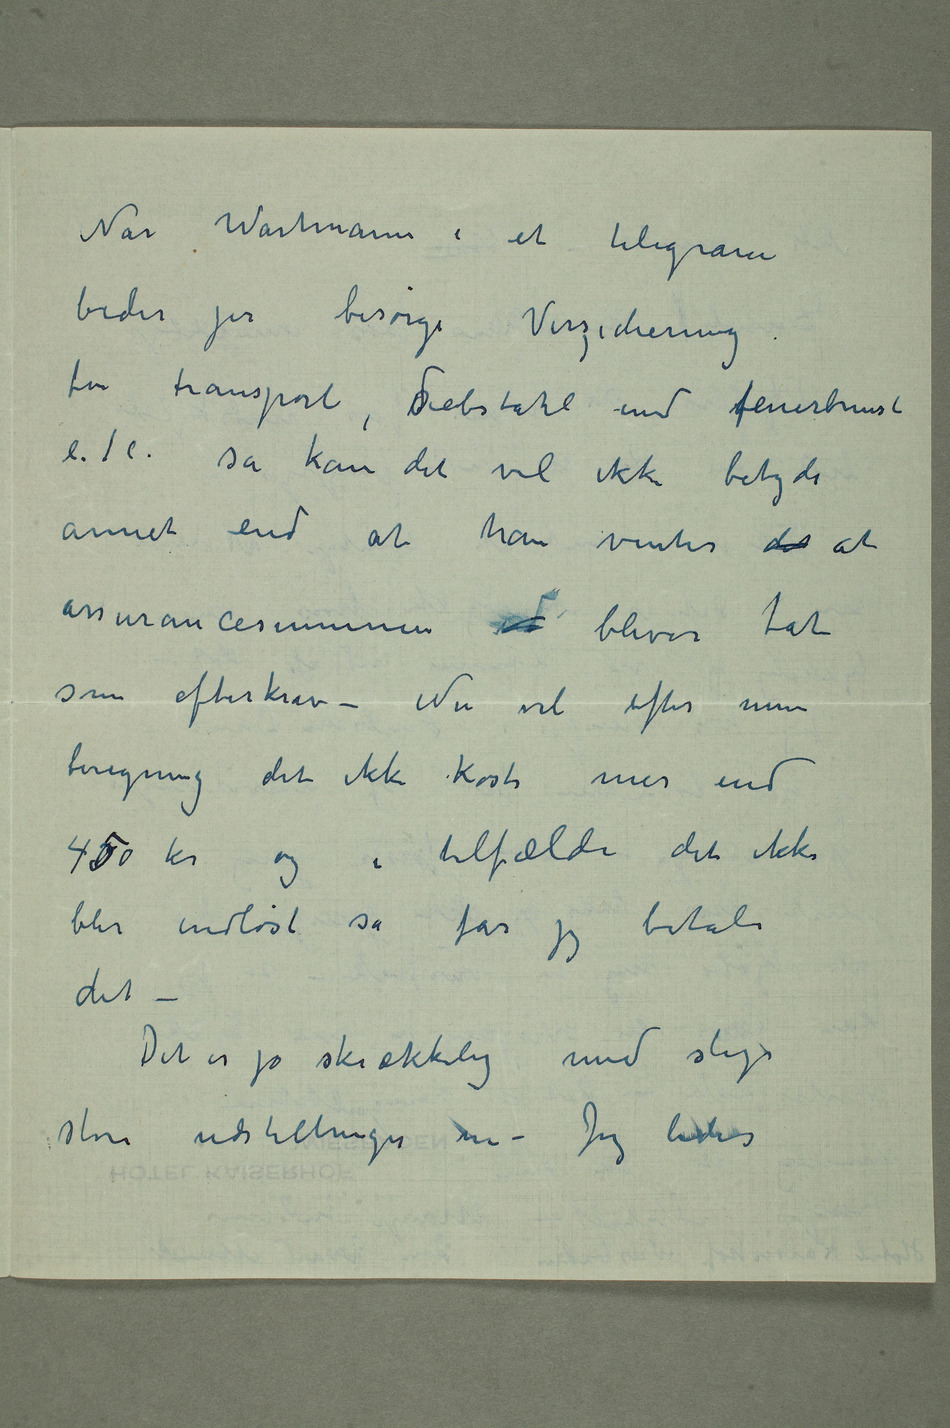 Når Wartmann i et telegram
beder jer besørge Verzicherung
for transport, Diebstahl und feuerbrunst
e.t.c. så kan det vel ikke betyde
annet end at han venter det at
assurancesummen bliver tat
som efterkrav – Nu vil efter min
beregning det ikke koste mer end
450 kr og i tilfælde det ikke
blir indløst så får jeg betale
det –
Det er jo skrækkelig med slige
store udstillinger – Jeg
HOTEL KAISERHOF